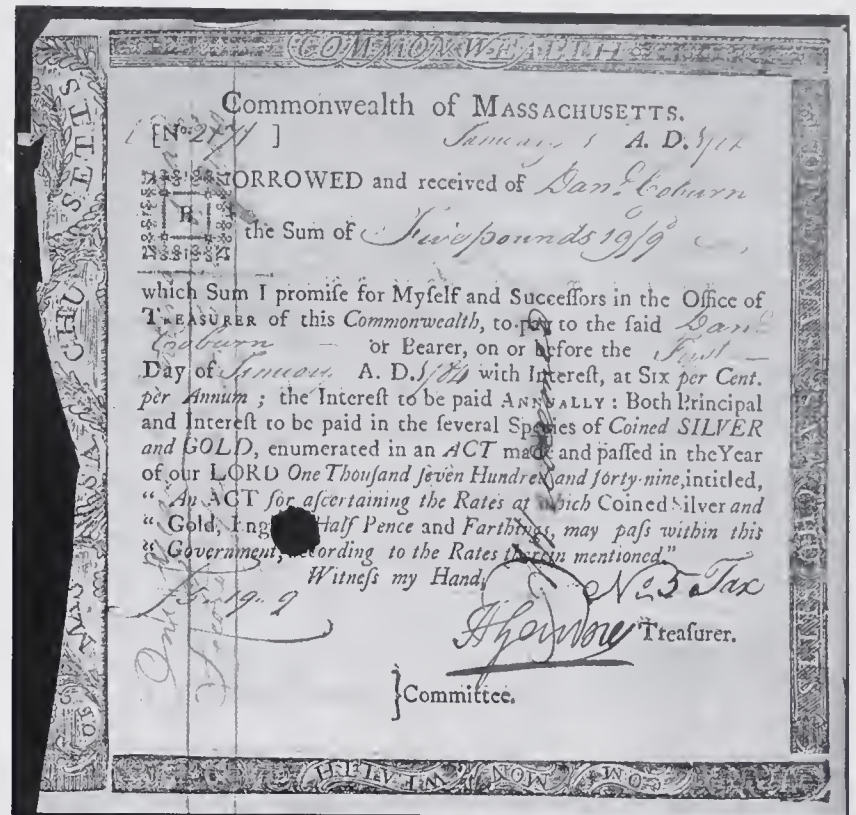 COMMONWEALTH
Commonwealth of MASSACHUSETTS.
[No. 2471 ]
January 1 A. D. 1782
BORROWED and received of Danl Coburn
the Sum of Five pounds 19/9
which Sum I promiſe for Myſelf and Succeſſors in the Office of
TREASURER of this Commonwealth, to pay to the ſaid Danl
Coburn or Bearer, on or before the Firſt
Day of January A. D. 1784 with Intereſt, at Six per Cent.
per Annum ; the Intereſt to be paid ANNUALLY : Both Principal
and Intereſt to be paid in the ſeveral Species of Coined SILVER
and GOLD, enumerated in an ACT made and paſſed in the Year
of our LORD One Thouſand ſeven Hundred and forty-nine, intitled,
“ An ACT for aſcertaining the Rates at which Coined Silver and
“ Gold, Half Pence and Farthings, may paſs within this
“ Government, according to the Rates therein mentioned.”
Witneſs my Hand,
5-19-9
No. 5 Tax
Treaſurer.
}Committee.
OF MASSACHUSETTS
COMMONWEALTH